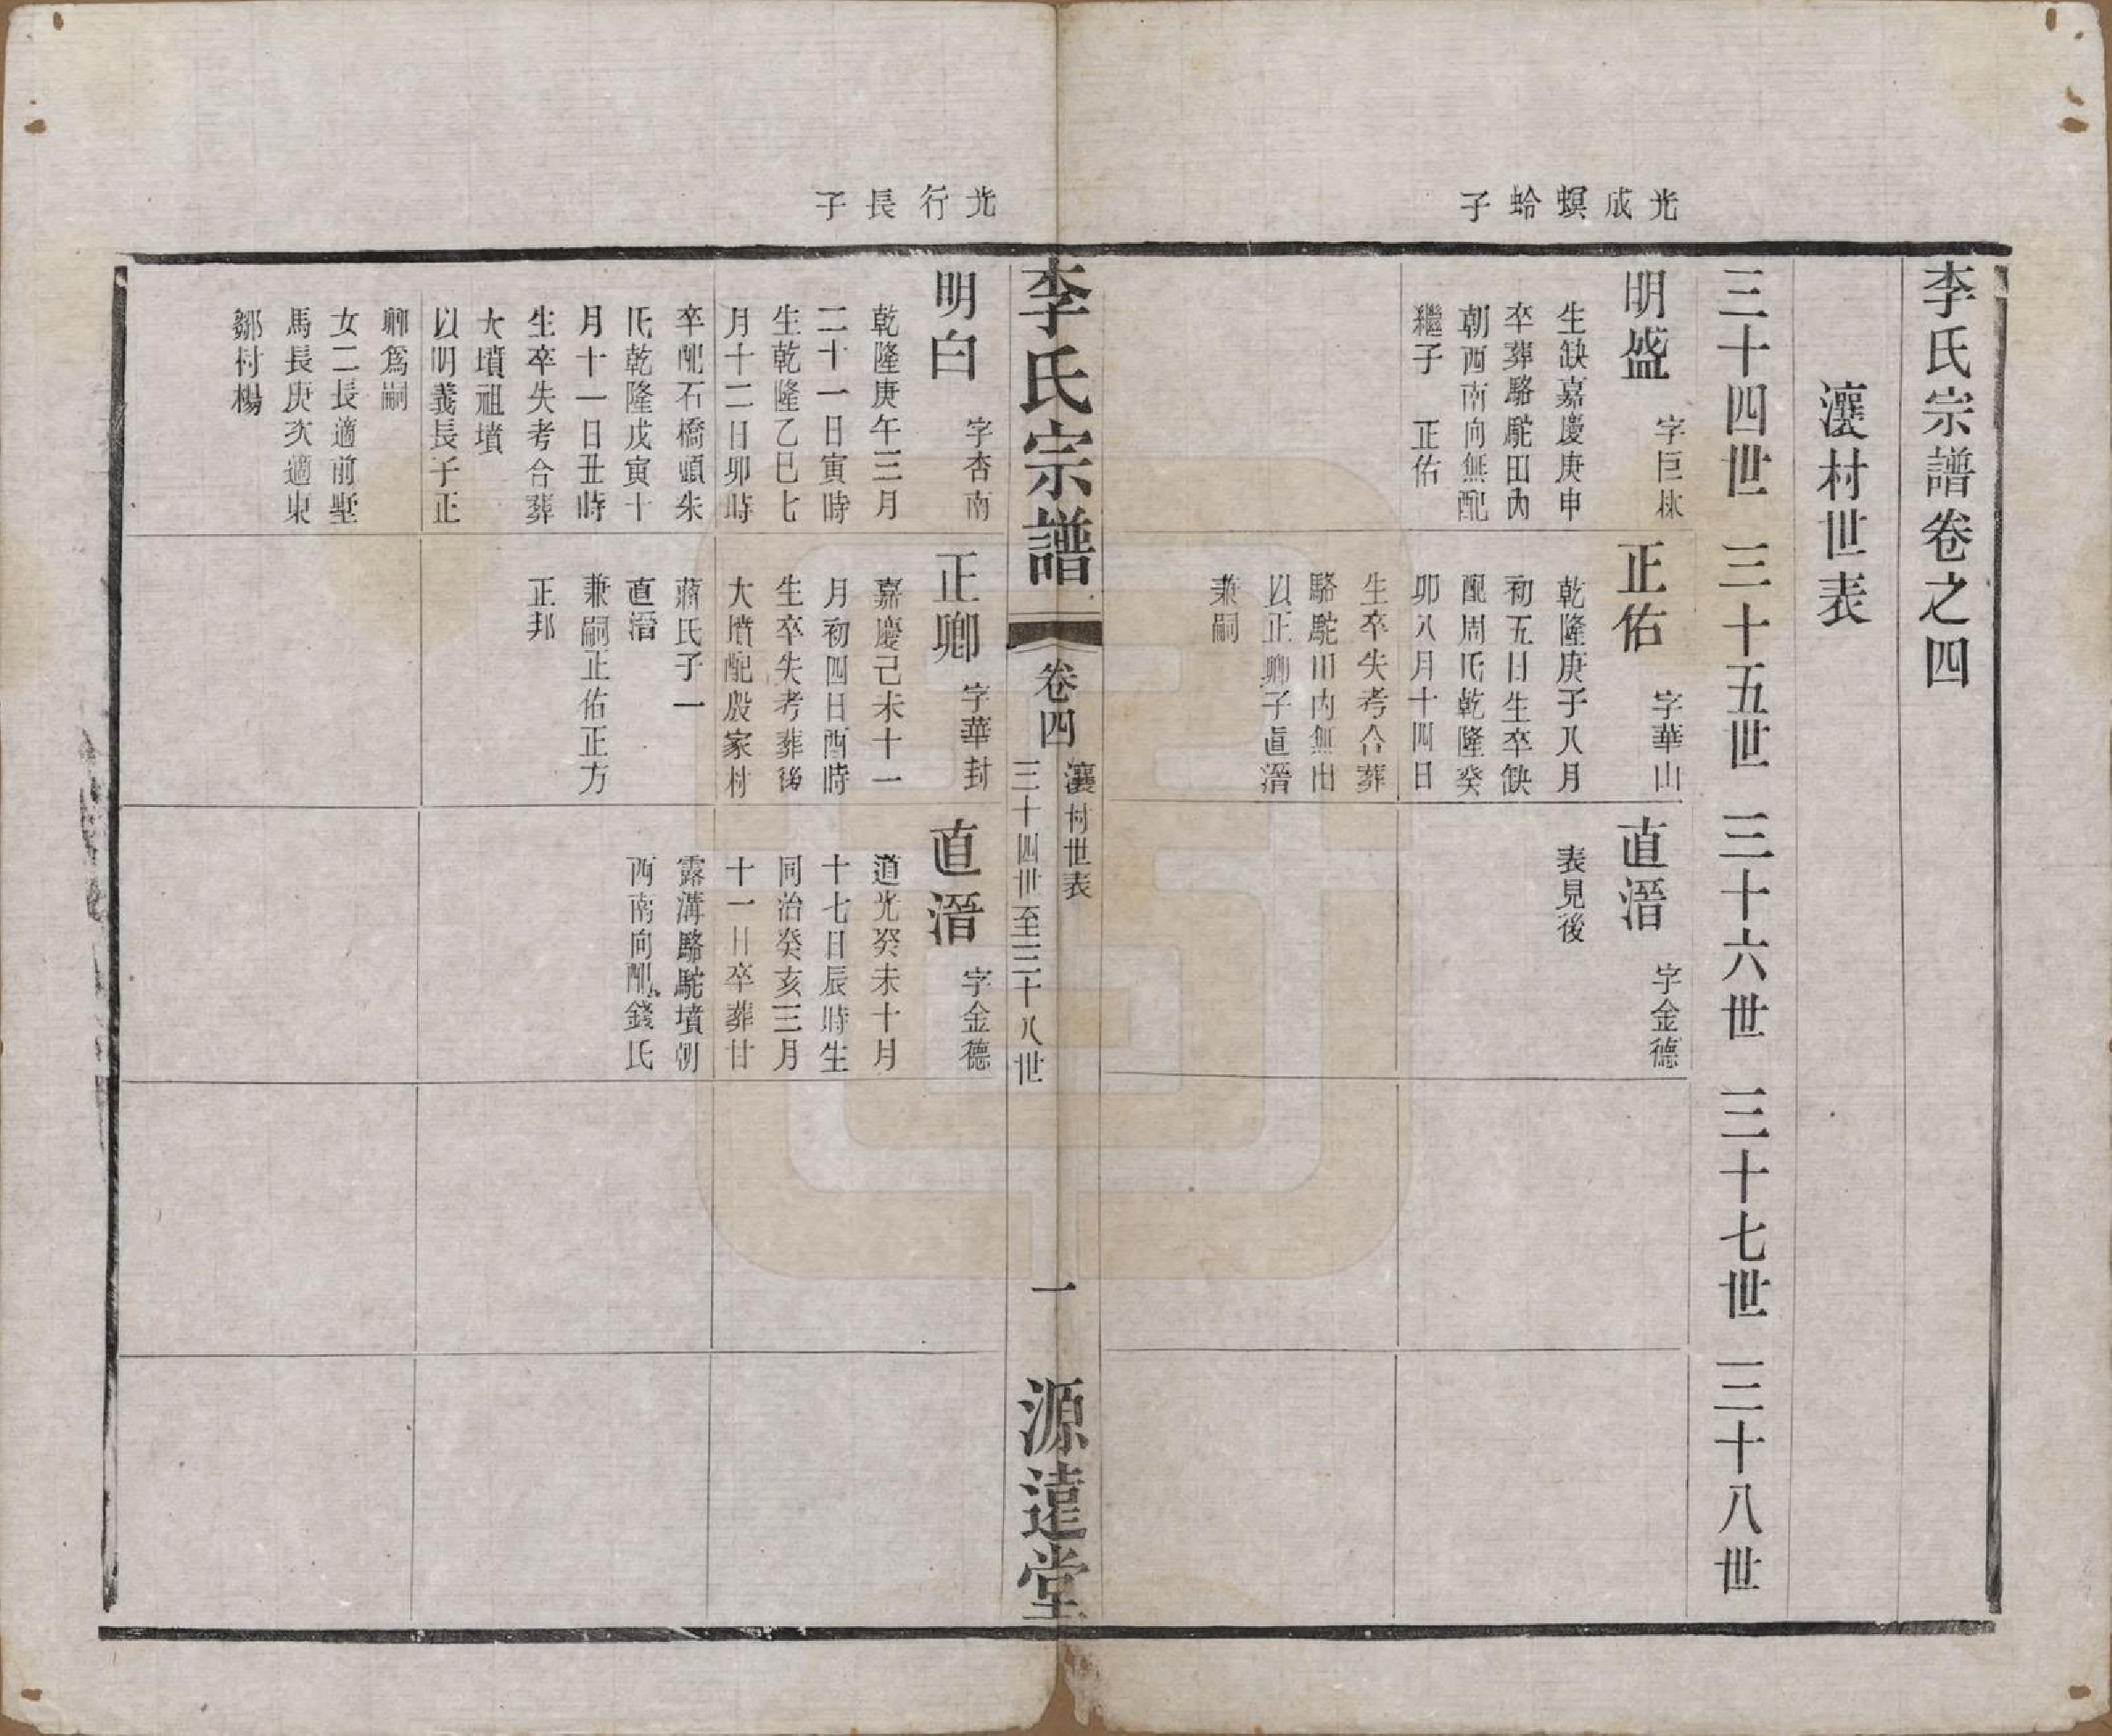 李氏宗譜卷之四
瀼村世表
三十四世
三十五世
三十六世
三十七世
三十八世
光成螟蛉子
明盛
字巨栐
生缺嘉慶庚申
卒葬駱駝田內
朝西南向無配
繼子 正佑
正佑
字華山
乾隆庚子八月
初五日生卒缺
配周氏乾隆癸
卯八月十四日
生卒失考合葬
駱駝田內無出
以正卿子直溍
兼嗣
直溍
字金德
表見後
李氏宗譜
卷四
瀼村世表
三十四世至三十八世
一
源遠堂
光行長子
明白
字杏南
乾隆庚午三月
二十一日寅時
生乾隆乙巳七
月十二日卯時
卒配石橋頭朱
氏乾隆戊寅十
月十一日丑時
生卒失考合葬
大墳祖墳
以明義長子正
卿為嗣
女二長適前墅
馬長庚次適東
鄒村楊
正卿
字華封
嘉慶己未十一
月初四日酉時
生卒失考葬後
大墳配殷家村
蔣氏子一
直溍
兼嗣正佑正方
正邦
直溍
字金德
道光癸未十月
十七日辰時生
同治癸亥三月
十一日卒葬甘
露溝駱駝墳朝
西南向配錢氏